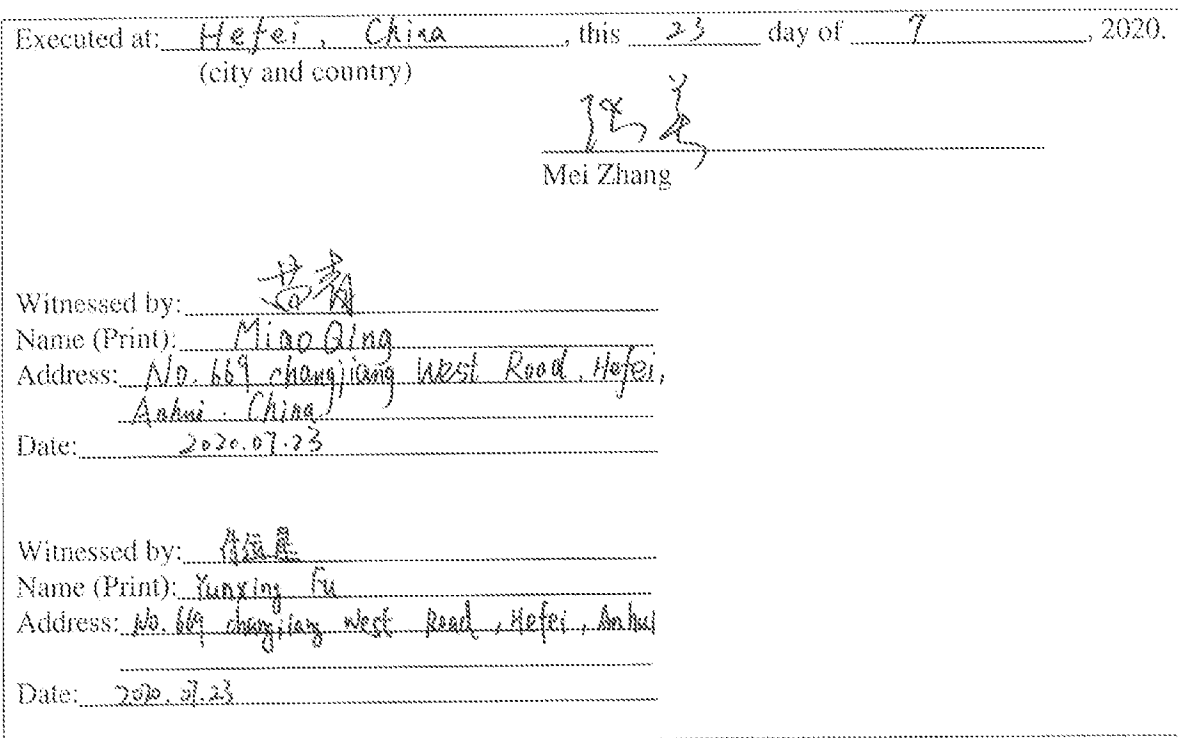 Executed at: Hefei, China, this 23 day of 7, 2020.
(city and country)
张美
Mei Zhang
Witnessed by: 苗青
Name (Print): Miao Qing
Address: No. 669 changjiang West Road, Hefei,
Anhui. China
Date: 2020.07.23
Witnessed by:
Name (Print): Yunxing Fu
Address: No. 669 changjiang West Road, Hefei, Anhui
Date: 2020.07.23